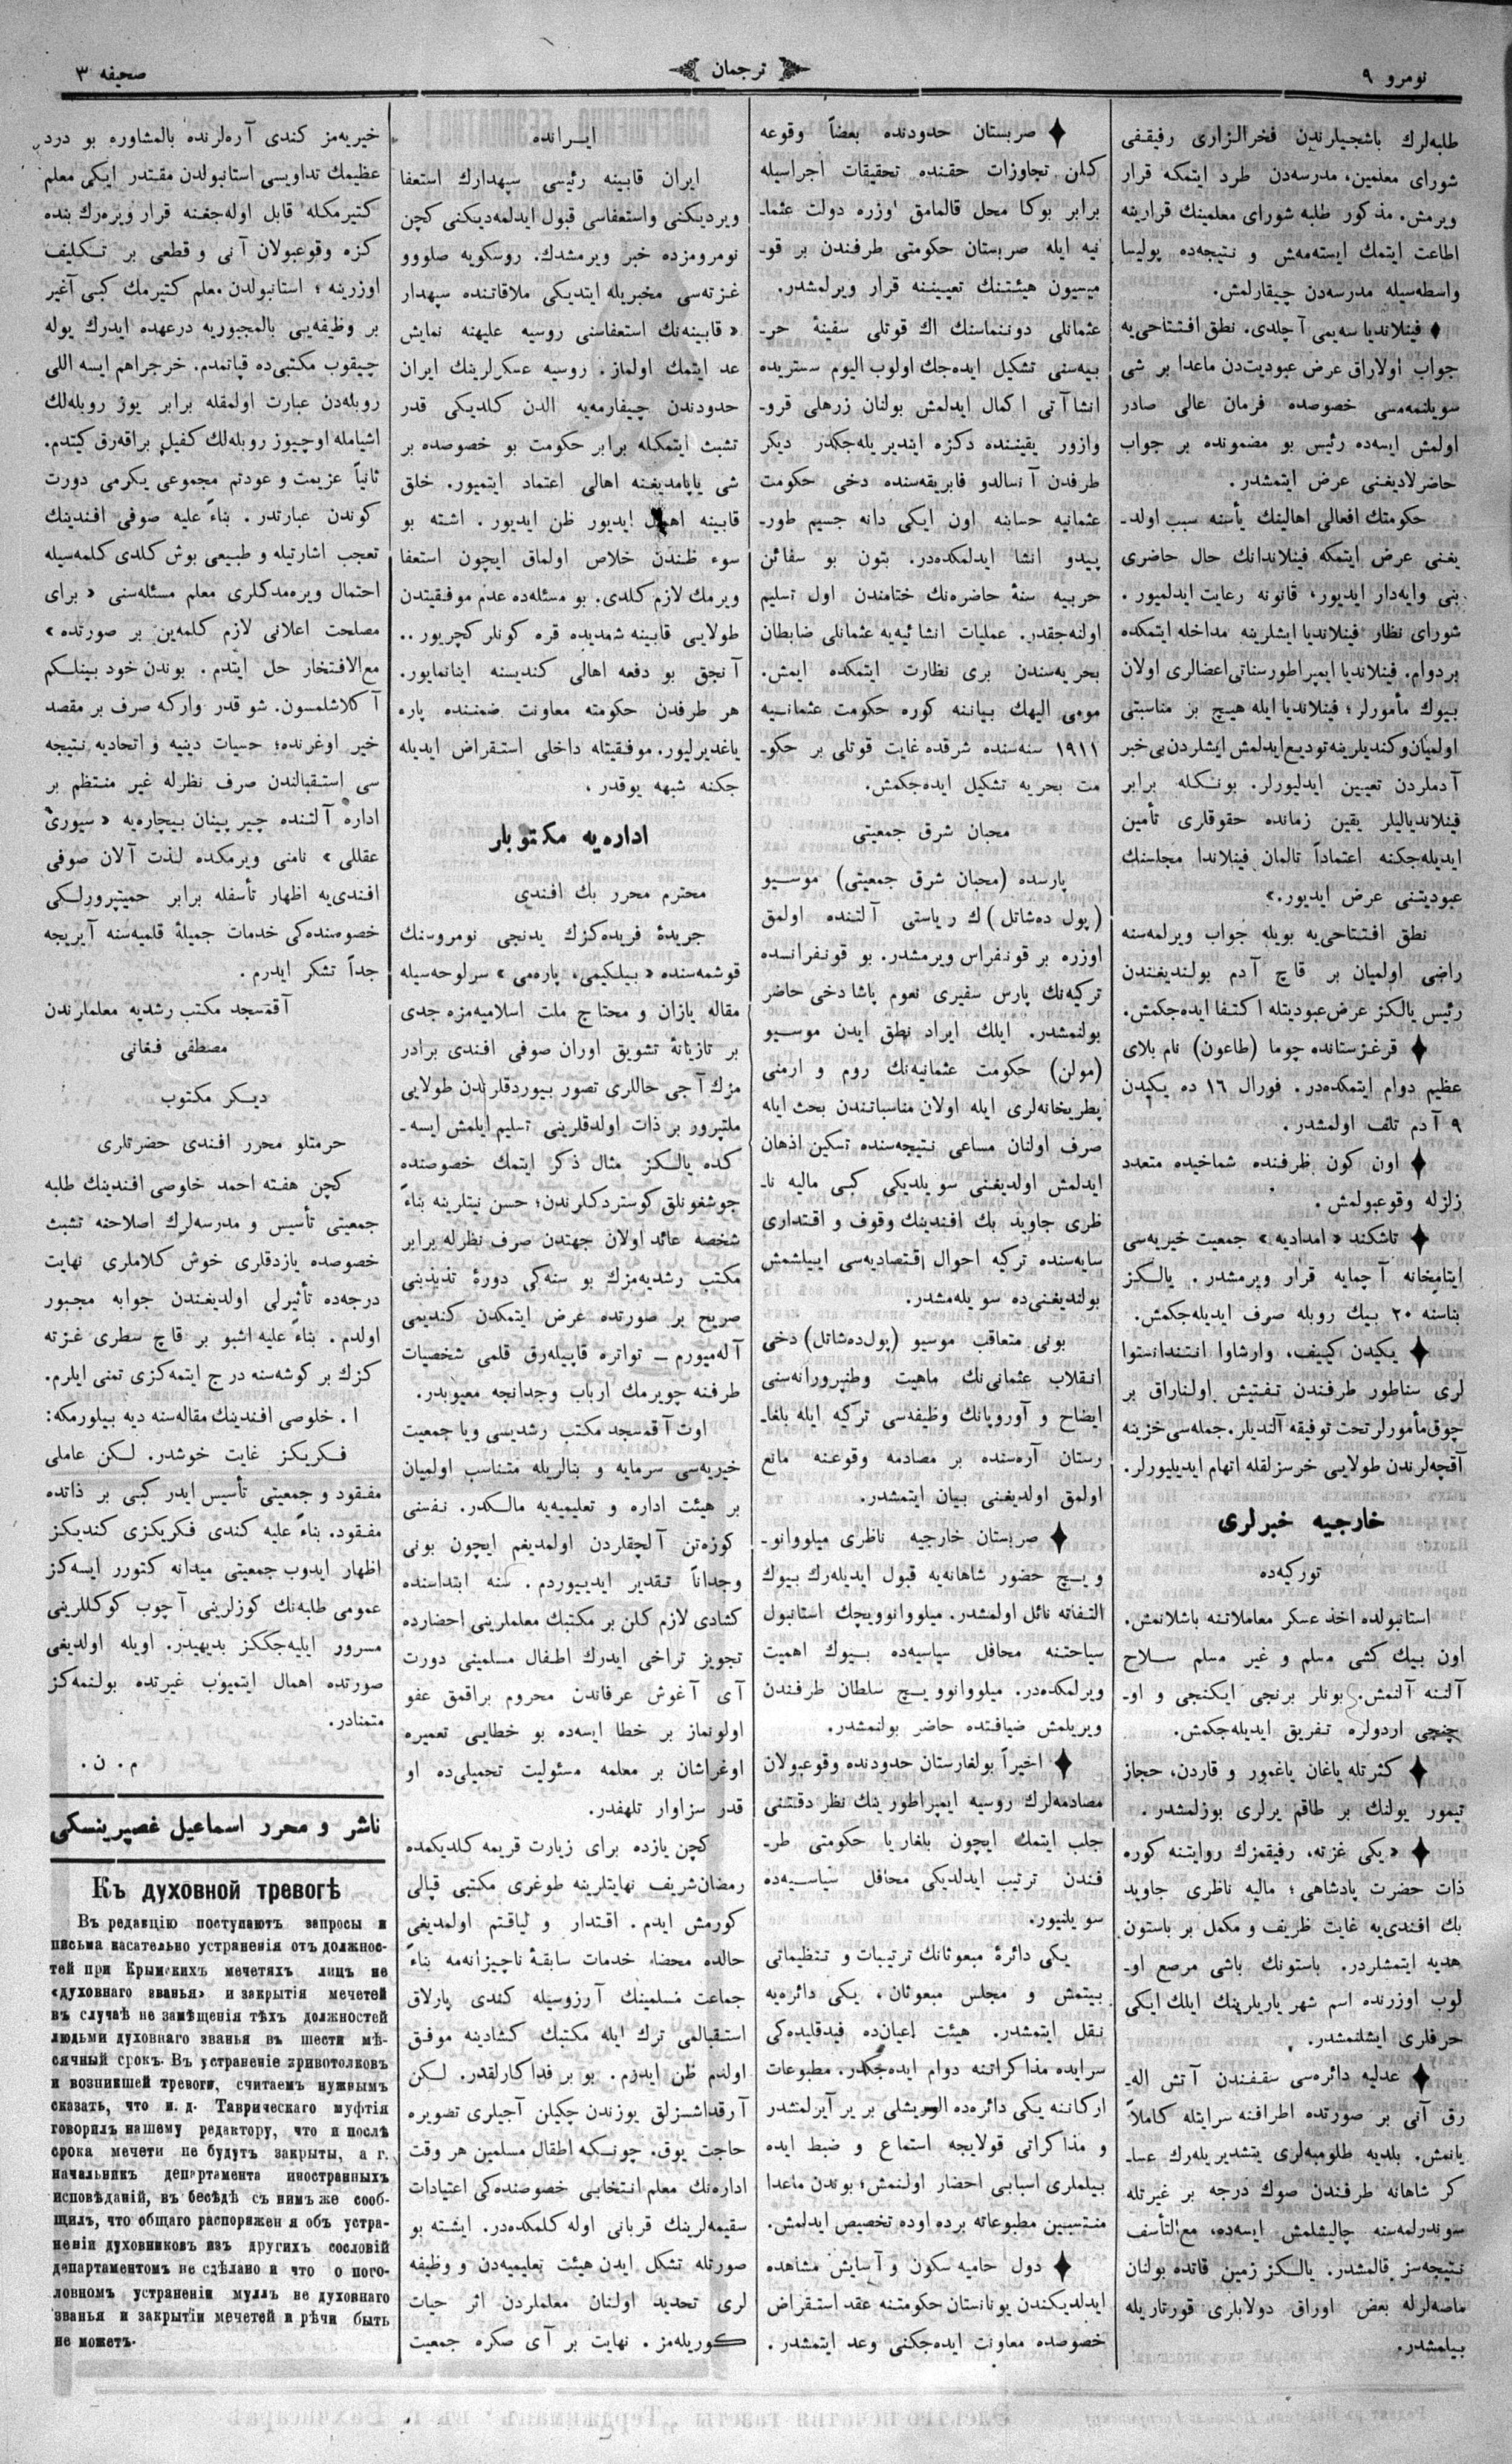 نومرو ٩
ترجمان
صحیفه ٣
طلبه‌لرك باشجیلرندن فخرالزاری رفیقـفی
شورای معلمین، مدرسه‌دن طرد ایتمكه قرار
ویرمش. مذكور طلبه شورای معلمینك قرارینه
اطاعت ایتمك ایسته‌مه‌ش و نـتیجه‌ده پولیسا
واسطه‌سیله مدرسه‌دن چیقارلمش.
♦ فینلاندیا سه‌یمی آچلدی. نطق افـشتاحی‌یه
جواب اولاراق عرض عبودیت‌دن ماعدا بر شی
سویلنمه‌مسی خصوصده فرمان عالی صادر
اولمش ایسه‌ده رئیس بو مضمونده بر جواب
حاضرلادیغنی عرض ایتمشدر.
حكومتك افعالی اهالینك یأسنه سبب اولد۔
یغنی عرض ایتمكه فینلاندانك حال حاضری
بنی وایه‌دار ایدیور، قانونه رعایت ایدلمیور.
شورای نظار فینلاندیا ایشلرینه مداخله ایتمكده
بردوام. فینلاندیا ایمپراطور سناتی اعضالری اولان
بیوك مأمورلر؛ فینلاندیا ایله هیـچ بر مناسبتی
اولمیان و كندیلرینه تودیـع ایدلمش ایشلردن بی خبر
آدملردن تعیین ایدلیورلر. بونـكـله برابر
فینلاندیالیلر یقین زمانده حقوقلری تأمین
ایدیله‌جكنه اعتماداً تالمان فینلاندا مجلسنك
عبودیتنی عرض ایدیور.»
نطق افـتتاحی‌یه بویله جواب ویرلمه‌سنه
راضی اولمیان بر قاچ آدم بولـندیغـندن
رئیس یالـكز عرض عبودیتله اكتـفا ایده‌جكمش.
♦ قرغـزستانده چوما (طاعون) نام بلای
عظیم دوام ایتمكده‌در. فورال ١٦ ده یـكیدن
٩ آدم تلف اولمشدر.
♦ اون كون ظرفـنده شماخیده متعدد
زلزله وقوعبولمش.
♦ تاشكند «امدادیه» جمعیت خیریه‌سی
ایتامخانه آچمایه قرار ویرمشدر. یالـكز
بناسنه ٢٠ بیك روبله صرف ایدیله‌جكمش.
♦ یكیدن كییف، وارشاوا انـتـندانستوا
لری سناطور طرفـندن تـفـتیش اولـناراق بر
چوق مأمورلر تحت توقیفه آلندیلر. جمله‌سی خزینه
آقچه‌لرندن طولایی خرسزلقله اتهام ایدیلیورلر.
خارجیه خبرلری
توركیه‌ده
استانبولده اخذ عسكر معاملاتـنه باشلانمش.
اون بیك كشی مسلم و غیر مسلم سـلاح
آلـتـنه آلنمش. بونلر برنجی ایكنجی و او۔
چنجی اردولره تـفریق ایدیله‌جكمش.
♦ كثرتله یاغان یاغمور و قاردن، حجاز
تیمور یولنك بر طاقم یرلری بوزلمشدر.
♦ «یكی غزته، رفیقمزك روایتـنه كوره
ذات حضرت پادشاهی؛ مالیه ناظری جاوید
بك افـندی‌یه غایت ظریف و مكمل بر باستون
هدیه ایتمشلردر. باستونك باشی مرصع او۔
لوب اوزرنده اسم شهریاریلرینك ایلك ایكی
حرفلری ایشلنمشدر.
♦ عدلیه دائره‌سی سقـفـندن آتش الـه۔
رق آنی بر صورتده اطرافـنه سرایتله كاملاً
یانمش. بلدیه طلومبه‌لری یتشدیریله‌رك عسا۔
كر شاهانه طرفـندن صوك درجه بر غیرتله
سوندرلمه‌سنه چالیشلمش ایسه‌ده، مع‌التأسف
نـتیجه‌سز قالمشدر. یالـكز زمین قاتده بولنان
ماصه‌لرله بعض اوراق دولابلری قورتاریله
بیلمشدر.
♦ صربستان حدودنده بعضاً وقوعه
كلن تجاوزات حقـنده تحقیقات اجراسیله
برابر بوكا محل قالمامق اوزره دولت عثما۔
نیه ایله صربستان حكومتی طرفـندن بر قو۔
میسیون هیئتنك تعیینـنه قرار ویرلمشدر.
عثمانلی دونـنماسنك اك قوتلی سفینهٔ حر۔
بیه‌سنی تشكیل ایده‌جك اولوب الیوم سستریده
انشاآتی اكمال ایدلمش بولنان زرهلی قرو۔
وازور یقیـنـنده دكزه ایندیریله‌جكدر دیكر
طرفدن آنسالدو فابریقه‌سنده دخی حكومت
عثمانیه حسابنه اون ایكی دانه جسیم طور۔
پیدو انشا ایدلمكده‌در. بتون بو سفائن
حربیه سنهٔ حاضره‌نك ختامندن اول تسلیم
اولنه‌جقدر. عملیات انشائیه‌یه عثمانلی ضابطان
بحریه‌سندن بری نظارت ایتمكده ایمش.
مومی الیهك بیانـنه كوره حكومت عثمانـیه
١٩١١ سنه‌سنده شرقده غایت قوتلی بر حكو۔
مت بحریه تشكیل ایده‌جكمش.
محبان شرق جمعیتی
پارسده (محبان شرق جمعیتی) موسـیو
(پول ده‌شانل) ك ریاستی آلـتـنده اولمق
اوزره بر قونـفراس ویرمشدر. بو قونـفرانسده
تركیه‌نك پارس سفیری نعوم پاشا دخی حاضر
بولنمشدر. ایلك ایراد نطق ایدن موسـیو
(مولن) حكومت عثمانیه‌نك روم و ارمنی
پطریخانه‌لری ایله اولان مناسباتـندن بحث ایله
صرف اولنان مساعی نـتیجه‌سنده تسكین اذهان
ایدلمش اولدیغنی سویلدیكی كبی مالیه نا۔
ظری جاوید بك افـندینك وقوف و اقـتداری
سایه‌سنده تركیه احوال اقـتصادیه‌سی اییلشمش
بولندیغـنی‌ده سویله‌مشدر.
بونی متعاقب موسیو (پول‌ده‌شانل) دخی
انـقلاب عثمانی‌نك ماهیت وطنپرورانه‌سنی
ایضاح و آوروپانك وظیفه‌سی تركیه ایله بلغا۔
رستان آره‌سنده بر مصادمه وقوعنه مانع
اولمق اولدیغنی بیان ایتمشدر.
♦ صربستان خارجیه ناظری میلووانو۔
ویـچ حضور شاهانه‌یه قبول ایدیله‌رك بیوك
التـفاته نائل اولمشدر. میلووانوویچك استانبول
سیاحتـنه محافل سیاسیه‌ده بـیوك اهمیت
ویرلمكده‌در. میلووانوویـچ سلطان طرفـندن
ویریلمش ضیافـتده حاضر بولنمشدر.
♦ اخیراً بولغارستان حدودنده وقوعبولان
مصادمه‌لرك روسیه ایمپراطورینك نظر دقـتـنی
جلب ایتمك ایچون بلغاریا حكومتی طر۔
فـندن ترتیب ایدلدیكی محافل سیاسـیه‌ده
سویلنیور.
یكی دائرهٔ مبعوثانك ترتیبات و تـنظیماتی
بیتمش و مجلس مبعوثان، یكی دائره‌یه
نـقل ایتمشدر. هیئت اعیان‌ده فیدقلیده‌كی
سرایده مذاكراتـنه دوام ایده‌جكدر. مطبوعات
اركانـنه یكی دائره‌ده الویریشلی بر یر آیرلمشدر
و مذاكراتی قولایجه استماع و ضبط ایده
بیلملری اسبابی احضار اولـنمش؛ بوندن ماعدا
منـتسبین مطبوعاته برده اوده تخصیص ایدلمش.
♦ دول حامیه سكون و آسایش مشاهده
ایدلدیكندن یونانستان حكومتـنه عقد استـقراض
خصوصده معاونت ایده‌جكنی وعد ایتمشدر.
ایـرانده
ایران قابینه رئیسی سپهدارك استعفا
ویردیكنی واستعفاسی قبول ایدلمه‌دیكنی كچن
نومرومزده خبر ویرمشدك. روسكویه صلووو
غـزته‌سی مخبریله ایتدیكی ملاقاتـنده سپهدار
«قابینه‌نك استعفاسنی روسیه علیهنه نمایش
عد ایتمك اولماز. روسیه عسكرلرینك ایران
حدودندن چیقارمه‌یه الدن كلدیكی قدر
تشبث ایتمكله برابر حكومت بو خصوصده بر
شی یاپامدیغـنه اهالی اعتماد ایتمیور. خلق
قابینه اهمال ایدیور ظن ایدیور. اشته بو
سوء ظندن خلاص اولماق ایچون استعفا
ویرمك لازم كلدی. بو مسئله‌ده عدم موفـقیتدن
طولایی قابینه شمدیده قره كونلر كچریور..
آنجق بو دفعه اهالی كندیسنه اینانمایور.
هر طرفدن حكومته معاونت ضمنـنده پاره
یاغدیرلیور. موفـقیتله داخلی استـقراض ایدیله
جكنه شبهه یوقدر.
اداره‌یه مكتوبلر
محترم محرر بك افـندی
جریدهٔ فریده‌كزك یدنجی نومروسنك
قوشمه‌سنده «بیلـكیمی، پاره‌می» سرلوحه‌سیله
مقاله یازان و محتاج ملت اسلامیه‌مزه جدی
بر تازیانهٔ تشویق اوران صوفی افـندی برادر
مزك آجی حاللری تصور بیوردقلرندن طولایی
ملتپرور بر ذات اولدقلرینی تسلیم ایلمش ایسه۔
كده یالـكز مثال ذكر ایتمك خصوصنده
جوشغونلق كوستردكلرندن؛ حسن نیتلرینه بناءً
شخصه عائد اولان جهتدن صرف نظرله برابر
مكتب رشدیه‌مزك بو سنه‌كی دورهٔ تذبذبنی
صریح بر صورتده عرض ایتمكدن كندیمی
آله‌میورم — تواتره قاپیله‌رق قلمی شخصیات
طرفـنه چویرمك ارباب وجدانجه معیوبدر.
اوت آقمسجد مكتب رشدیسی ویا جمعیت
خیریه‌سی سرمایه و بنالریله متـناسب اولمیان
بر هیئت اداره و تعلیمیه‌یه مالـكدر. نـفسنی
كوزه‌تن آلچقلردن اولمدیغم ایچون بونی
وجداناً تـقدیر ایدیـیوردم. سنه ابتداسنده
كشادی لازم كلن بر مكتبك معلملرینی احضارده
تجویز تراخی ایدرك اطـفال مسلمینی دورت
آی آغوش عرفاندن محروم براقمق عفو
اولونماز بر خطا ایسه‌ده بو خطایی تعمیره
اوغراشان بر معلمه مسئولیت تحمیلی‌ده او
قدر سزاوار تلهفدر.
كچن یازده برای زیارت قریمه كلدیكمده
رمضان‌شریف نهایتلرینه طوغری مكتبی قپالی
كورمش ایدم. اقـتدار و لیاقـتم اولمدیغی
حالده محضاء خدمات سابقهٔ ناچیزانه‌مه بناءً
جماعت مسلمینك آرزوسیله كندی پارلاق
استـقبالمی ترك ایله مكتبك كشادینه موفـق
اولدم ظن ایدرم. بو بر فداكارلقدر. لـكن
آرقداشسزلق یوزندن چكیلن آجیلری تصویره
حاجت یوق. چونـكه اطفال مسلمین هر وقت
اداره‌نك معلم انـتخابی خصوصنده‌كی اعتیادات
سقیمه‌لرینك قربانی اوله كلمكده‌در. ایشته بو
صورتله تشكل ایدن هیئت تعلیمیه‌دن و وظیفه
لری تحدید اولـنان معلملردن اثر حیات
كوریله‌مز. نهایت بر آی صكره جمعیت
خیریه‌مز كندی آره‌لرنده بالمشاوره بو درد
عظیمك تداویسی استانبولدن مقـتدر ایكی معلم
كتیرمكله قابل اوله‌جغـنه قرار ویره‌رك بنده
كزه وقوعبولان آنی و قطعی بر تـكلیف
اوزرینه؛ استانبولدن معلم كتیرمك كبی آغیر
بر وظیفه‌یی بالمجبوریه درعهده ایدرك یوله
چیقوب مكتبی‌ده قپاتمدم. خرجراهم ایسه اللی
روبله‌دن عبارت اولمقله برابر یوز روبله‌لك
اشیامله اوچیوز روبله‌لك كفیل براقه‌رق كیتدم.
ثانیاً عزیمت و عودتم مجموعی یكرمی دورت
كوندن عبارتدر. بناءً علیه صوفی افـندینك
تعجب اشارتیله و طبیعی بوش كلدی كلمه‌سیله
احتمال ویره‌مدكلری معلم مسئله‌سنی «برای
مصلحت اعلانی لازم كلمه‌ین بر صورتده»
مع‌الافـتخار حل ایتدم. بوندن خود بینلـكم
آكلاشلمسون. شو قدر واركه صرف بر مقصد
خیر اوغرنده؛ حسیات دینیه و اتحادیه نتیجه
سی استـقبالندن صرف نظرله غیر منـتظم بر
اداره آلتـنده چیرپینان بیچاره‌یه «سیوری
عقللی» نامنی ویرمكده لـذت آلان صوفی
افـندی‌یه اظهار تأسفله برابر حمیتپرورلـكی
خصوصنده‌كی خدمات جمیلهٔ قلمیه‌سنه آیریجه
جداً تشكر ایدرم.
آقمسجد مكتب رشدیه معلملرندن
مصطفی فـغانی
دیـكر مكتوب
حرمتلو محرر افـندی حضرتلری
كچن هفـته احمد خلوصی افـندینك طلبه
جمعیتی تأسیس و مدرسه‌لرك اصلاحنه تشبث
خصوصده یازدقلری خوش كلاملری نهایت
درجه‌ده تأثیرلی اولدیغـندن جوابه مجبور
اولدم. بناءً علیه اشبو بر قاچ سطری غـزته
كزك بر كوشه‌سنه درج ایتمه‌كزی تمنی ایلرم.
ا. خلوصی افـندینك مقاله‌سنه دیه بیلورمكه:
فـكریكز غایت خوشدر. لـكن عاملی
مفـقود و جمعیتی تأسیس ایدر كبی بر ذاتده
مفـقود. بناءً علیه كندی فـكریكزی كندیكز
اظهار ایدوب جمعیتی میدانه كتورر ایسه‌كز
عمومی طلبه‌نك كوزلرینی آچوب كوكللرینی
مسرور ایلیه‌جككز بدیهیدر. اویله اولدیغی
صورتده اهمال ایتمیوب غیرتده بولـنمه‌كز
متمنادر.
م. ن.
ناشر و محرر اسماعیل غصپرینسكی
Къ духовной тревогѣ
Въ редакцію поступаютъ запросы и
письма касательно устраненія отъ должнос-
тей при Крымскихъ мечетяхъ лицъ не
«духовнаго званья» и закрытія мечетей
въ случаѣ не замѣщенія тѣхъ должностей
людьми духовнаго званья въ шести мѣ-
сячный срокъ. Въ устраненіе кривотолковъ
и возникшей тревоги, считаемъ нужнымъ
сказать, что и. д. Таврическаго муфтія
говорилъ нашему редактору, что и послѣ
срока мечети не будутъ закрыты, а г.
начальникъ департамента иностранныхъ
исповѣданій, въ бесѣдѣ съ нимъ же сооб-
щилъ, что общаго распоряжен я объ устра-
неніи духовниковъ изъ другихъ сословій
департаментомъ не сдѣлано и что о пого-
ловномъ устраненіи муллъ не духовнаго
званья и закрытіи мечетей и рѣчи быть
не можетъ.